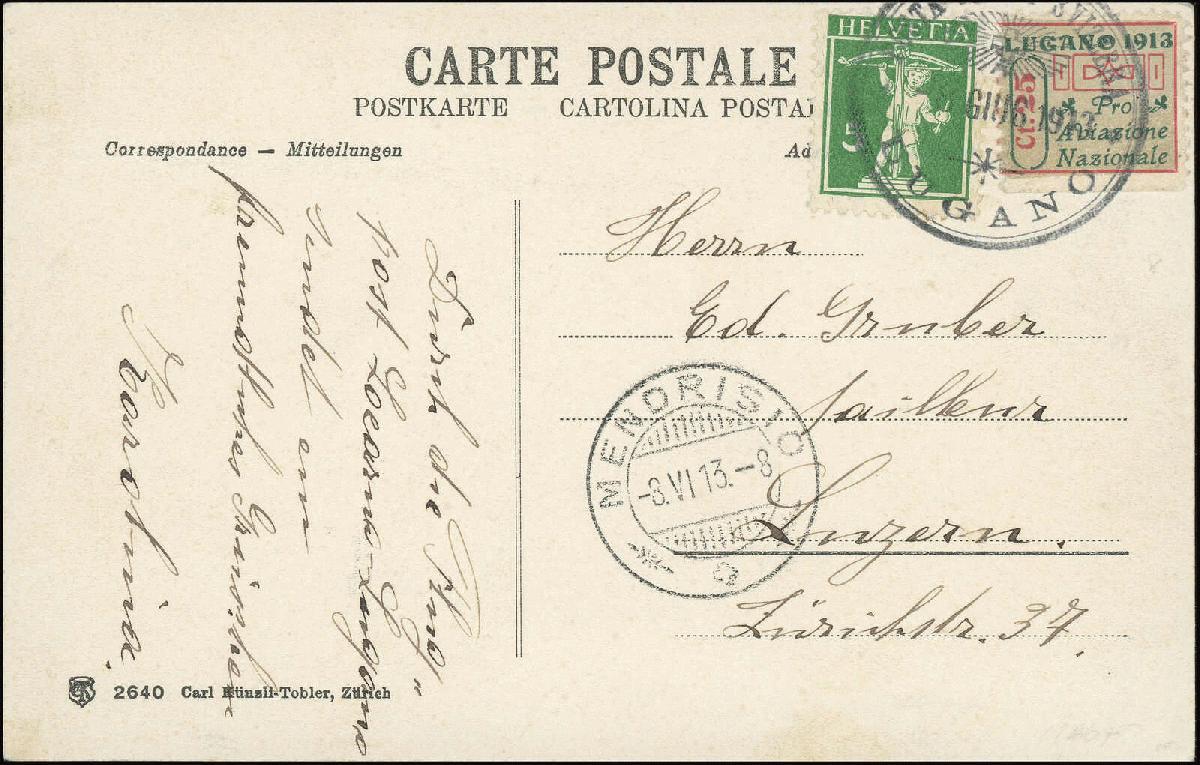 CARTE POSTALE
POSTKARTE CARTOLINA POSTAL
Correspondance — Mitteilungen
Ad
HELVETIA
5
LUGANO 1913
Ct. 25
Pro
Aviazione
Nazionale
GIU 6 1913
LUGANO
Herrn
Ed. Gruber
Luzern.
Zürichstr. 37
MENDRISIO
-8.VI 13.-8
Durch die "Flug"
post Locarno-Lugano
sendet ein
Carolina.
2640 Carl Künzli-Tobler, Zürich